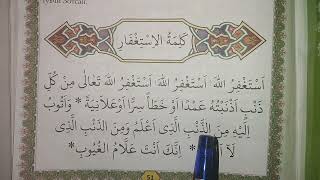 كَلِمَةُ الْاِسْتِغْفَارِ
اَسْتَغْفِرُ اللهَ اَسْتَغْفِرُ اللهَ اَسْتَغْفِرُ اللهَ تَعَالٰى مِنْ كُلِّ
ذَنْبٍ اَذْنَبْتُهُ عَمْدًا اَوْ خَطَأً سِرًّا اَوْ عَلَانِيَةً * وَاَتُوبُ
اِلَيْهِ مِنَ الذَّنْبِ الَّذِى اَعْلَمُ وَمِنَ الذَّنْبِ الَّذِى
لَا * اِنَّكَ اَنْتَ عَلَّامُ الْغُيُوبِ *
51